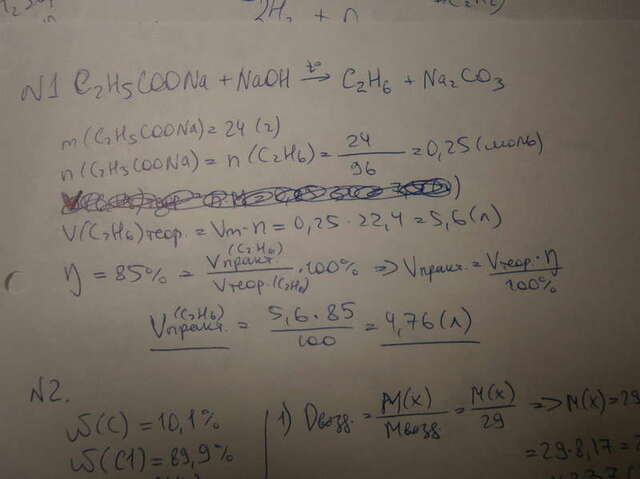 2H₂ + n
N1 C₂H₅COONa + NaOH →(t°) C₂H₆ + Na₂CO₃
m(C₂H₅COONa) = 24 (г)
n(C₂H₅COONa) = n(C₂H₆) = 24/96 = 0,25 (моль)
V(C₂H₆)теор. = Vm·n = 0,25·22,4 = 5,6 (л)
η = 85% = Vпракт.(C₂H₆)/Vтеор.(C₂H₆)·100% => Vпракт. = Vтеор.·η/100%
Vпракт.(C₂H₆) = 5,6·85/100 = 4,76 (л)
N2.
ω(C) = 10,1%
ω(Cl) = 89,9%
1) Dвозд. = M(x)/Mвозд = M(x)/29 => M(x) = 29
= 29·8,17 =